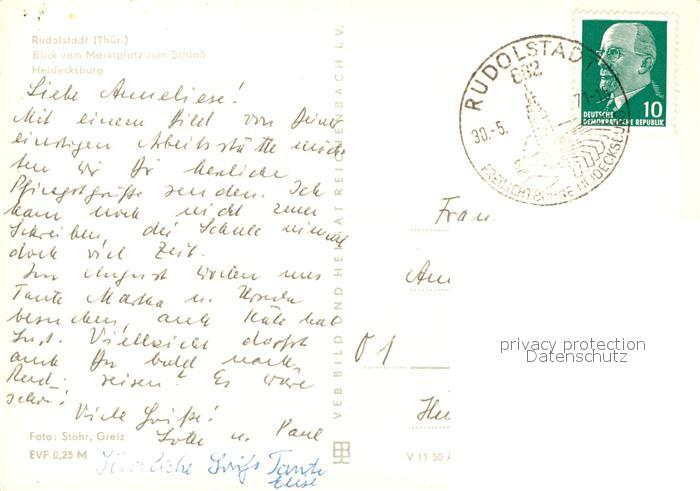 Rudolstadt (Thür.)
Blick vom Marktplatz zum Schloß
Heidecksburg
Liebe Anneliese!
Mit einem Bild von Deiner
einstigen Arbeitsstätte möch-
ten wir Dir herzliche
Pfingstgrüße senden. Ich
kam noch nicht zum
Schreiben, die Schule nimmt
doch viel Zeit.
Im August wollen uns
Tante Martha u. Ursula
besuchen, auch Käte hat
Lust. Vielleicht darfst
auch Du bald nach
Rud. reisen? Es wäre
schön!
Viele Grüße!
Lotte u. Paul
Herzliche Grüße Tante
Elise
Foto: Stöhr, Greiz
EVF 0,25 M
VEB BILD UND HEIMAT REICHENBACH I. V.
V 11 50
RUDOLSTADT
682
30.-5.
71-1
FREILICHTBÜHNE HEIDECKSBURG
10
DEUTSCHE
DEMOKRATISCHE REPUBLIK
Frau
01
privacy protection
Datenschutz